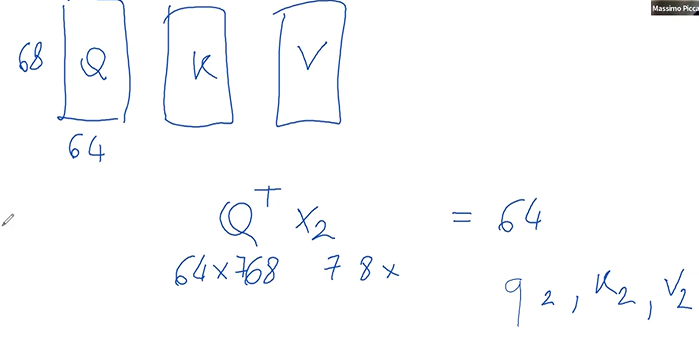 Massimo Picca
68 Q K V
64
Q^T x_2 = 64
64×768 7 8×
q_2, K_2, V_2